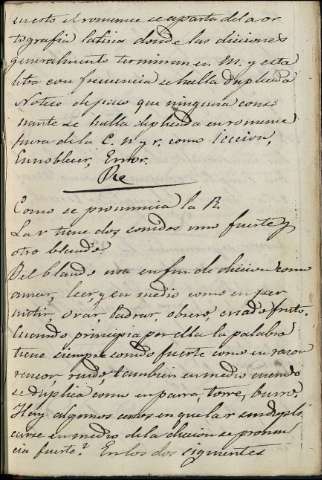 en esto el romance se aparta de la or
tografia latina donde las dicciones
generalmente terminan en M. y esta
letra con frecuencia se halla duplicada
Noteis de paso que ninguna conso
nante se halla duplicada en romance
fuera de la C. N y r. como leccion,
Ennoblecer, Error.
Re
Como se pronuncia la R.
La r tiene dos sonidos uno fuerte y
otro blando.
Del blando usa en fin de diccion como
amar, leer, y en medio como en per
mitir, orar, ladrar, obrero, criado, fruto.
Cuando principia por ella la palabra
tiene siempre sonido fuerte como en razon
rencor, ruido, tambien en medio cuando
se duplica como en parra, torre, burro.
Hay algunos casos en que la r sin duplic
carse en medio de la diccion se pronun
cia fuerte? En los dos siguientes